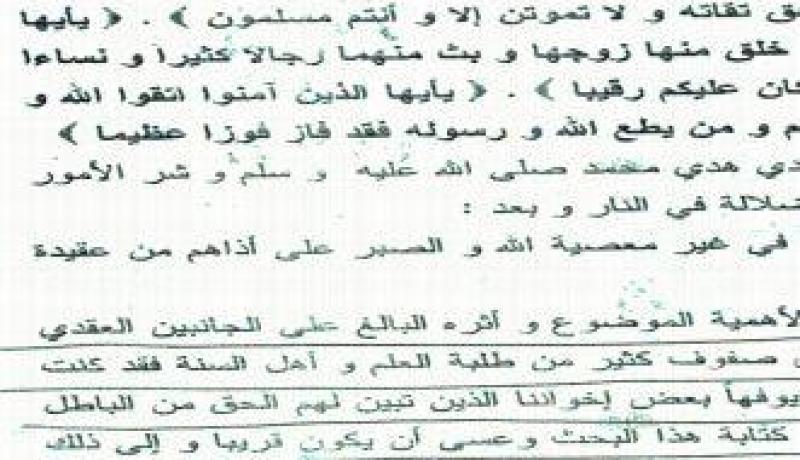 تقاته و لا تموتن إلا و أنتم مسلمون ﴾ . ﴿ يأيها
خلق منها زوجها و بث منهما رجالا كثيرا و نساءا
كان عليكم رقيبا ﴾ . ﴿ يأيها الذين آمنوا اتقوا الله و
م و من يطع الله و رسوله فقد فاز فوزا عظيما ﴾
هدي محمد صلى الله عليه و سلم و شر الأمور
ضلالة في النار و بعد :
في غير معصية الله و الصبر على أذاهم من عقيدة
لأهمية الموضوع و أثره البالغ على الجانبين العقدي
صفوف كثير من طلبة العلم و أهل السنة فقد كنت
بعض إخواننا الذين تبين لهم الحق من الباطل
كتابة هذا البحث وعسى أن يكون قريبا و إلى ذلك